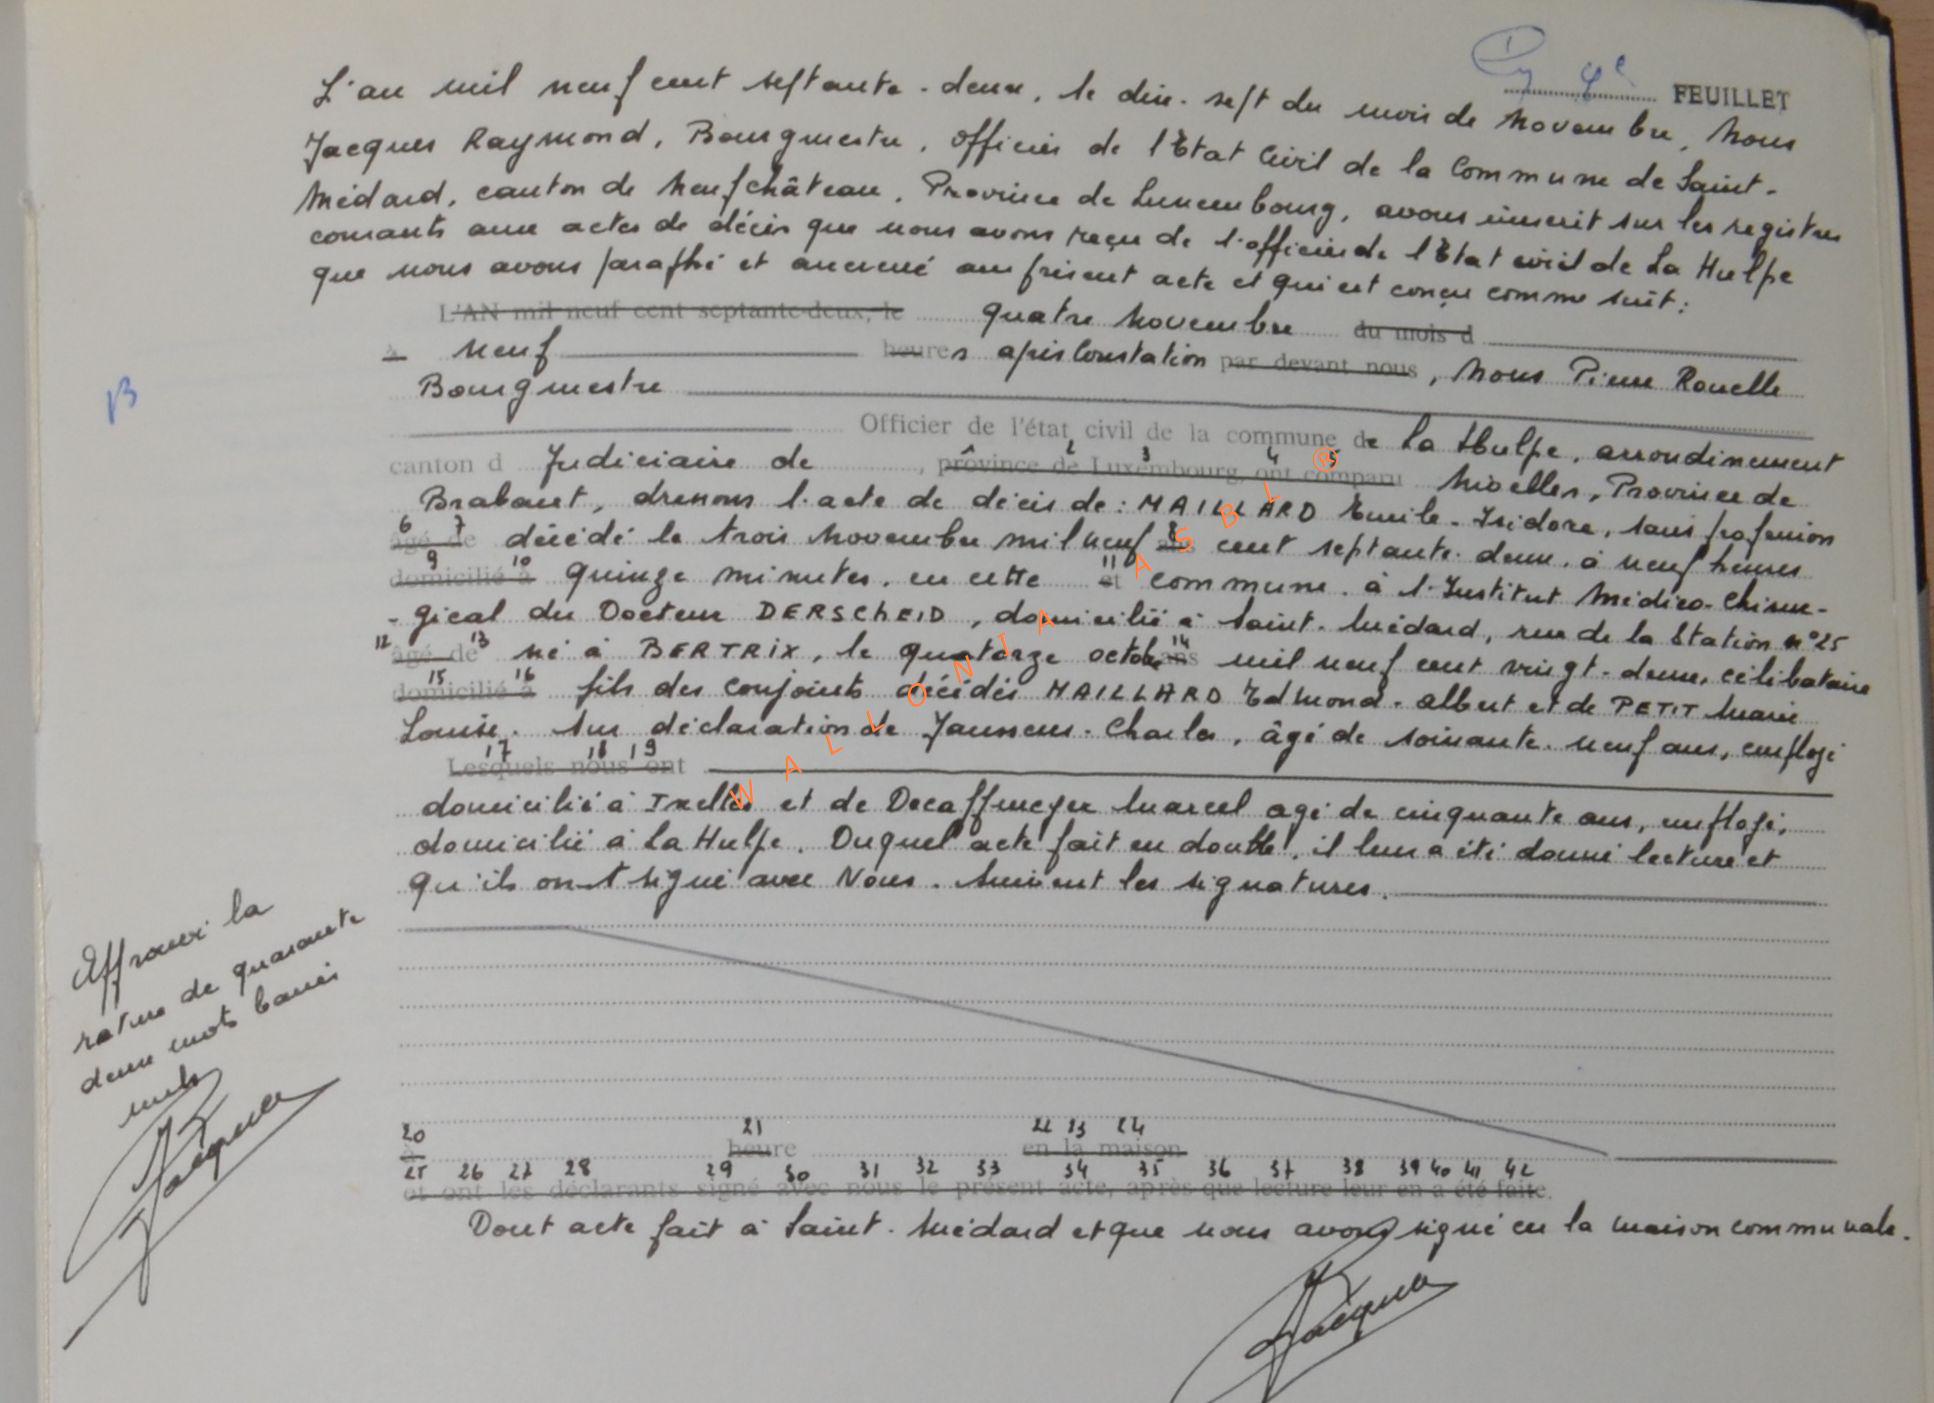 4e FEUILLET
L'an mil neuf cent septante-deux, le dix-sept du mois de novembre, Nous
Jacques Raymond, Bourgmestre, officier de l'Etat Civil de la Commune de Saint-
Médard, canton de Neufchâteau, Province de Luxembourg, avons inscrit sur les registres
courants aux actes de décès que nous avons reçu de l'officier de l'Etat civil de La Hulpe
que nous avons paraphé et annexé au présent acte et qui est conçu comme suit:
L'AN mil neuf cent septante-deux, le quatre Novembre du mois d
à neuf heures après Constatation par devant nous, Nous Pierre Rouelle
Bourgmestre
Officier de l'état civil de la commune de La Hulpe, arrondinement
1 2 3 4 5
canton d Judiciaire de , province de Luxembourg, ont comparu Nivelles, Province de
Brabant, dressons l'acte de décès de: MAILLARD Emile-Isidore, sans profession
6 7 8
âgé de décédé le trois Novembre mil neuf ans cent septante-deux, à neuf heures
9 10 11
domicilié à quinze minutes, en cette et commune, à l'Institut Médico-Chirur-
-gical du Docteur DERSCHEID, domicilié à Saint-Médard, rue de la Station n°25
12 13 14
âgé de né à BERTRIX, le quatorze octobre ans mil neuf cent vingt-deux, célibataire
15 16
domicilié à fils des conjoints décédés MAILLARD Edmond-Albert et de PETIT Marie
Louise. Sur déclaration de Janssens-Charles, âgé de soixante-neuf ans, employé
17 18 19
Lesquels nous ont
domicilié à Ixelles et de Decaffmeyer Marcel agé de cinquante ans, employé,
domicilié à La Hulpe. Duquel acte fait en double, il leur a été donné lecture et
qu'ils ont signé avec Nous. Suivent les signatures.
Approuvé la
rature de quarante
deux mots barrés
nuls
Jacques
20 21 22 23 24
à heure en la maison
25 26 27 28 29 30 31 32 33 34 35 36 37 38 39 40 41 42
et ont les déclarants signé avec nous le présent acte, après que lecture leur en a été faite.
Dont acte fait à Saint-Médard et que nous avons signé en la maison communale.
Jacques
WALLONIA ASBL ®